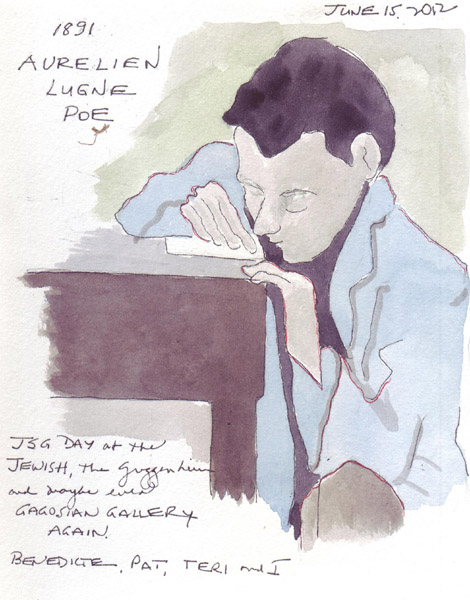 JUNE 15. 2012
1891
AURELIEN
LUGNE
POE
JSG DAY at the
JEWISH, the Guggenheim
and maybe even
GAGOSIAN GALLERY
AGAIN.
BENEDICTE, PAT, TERI and I